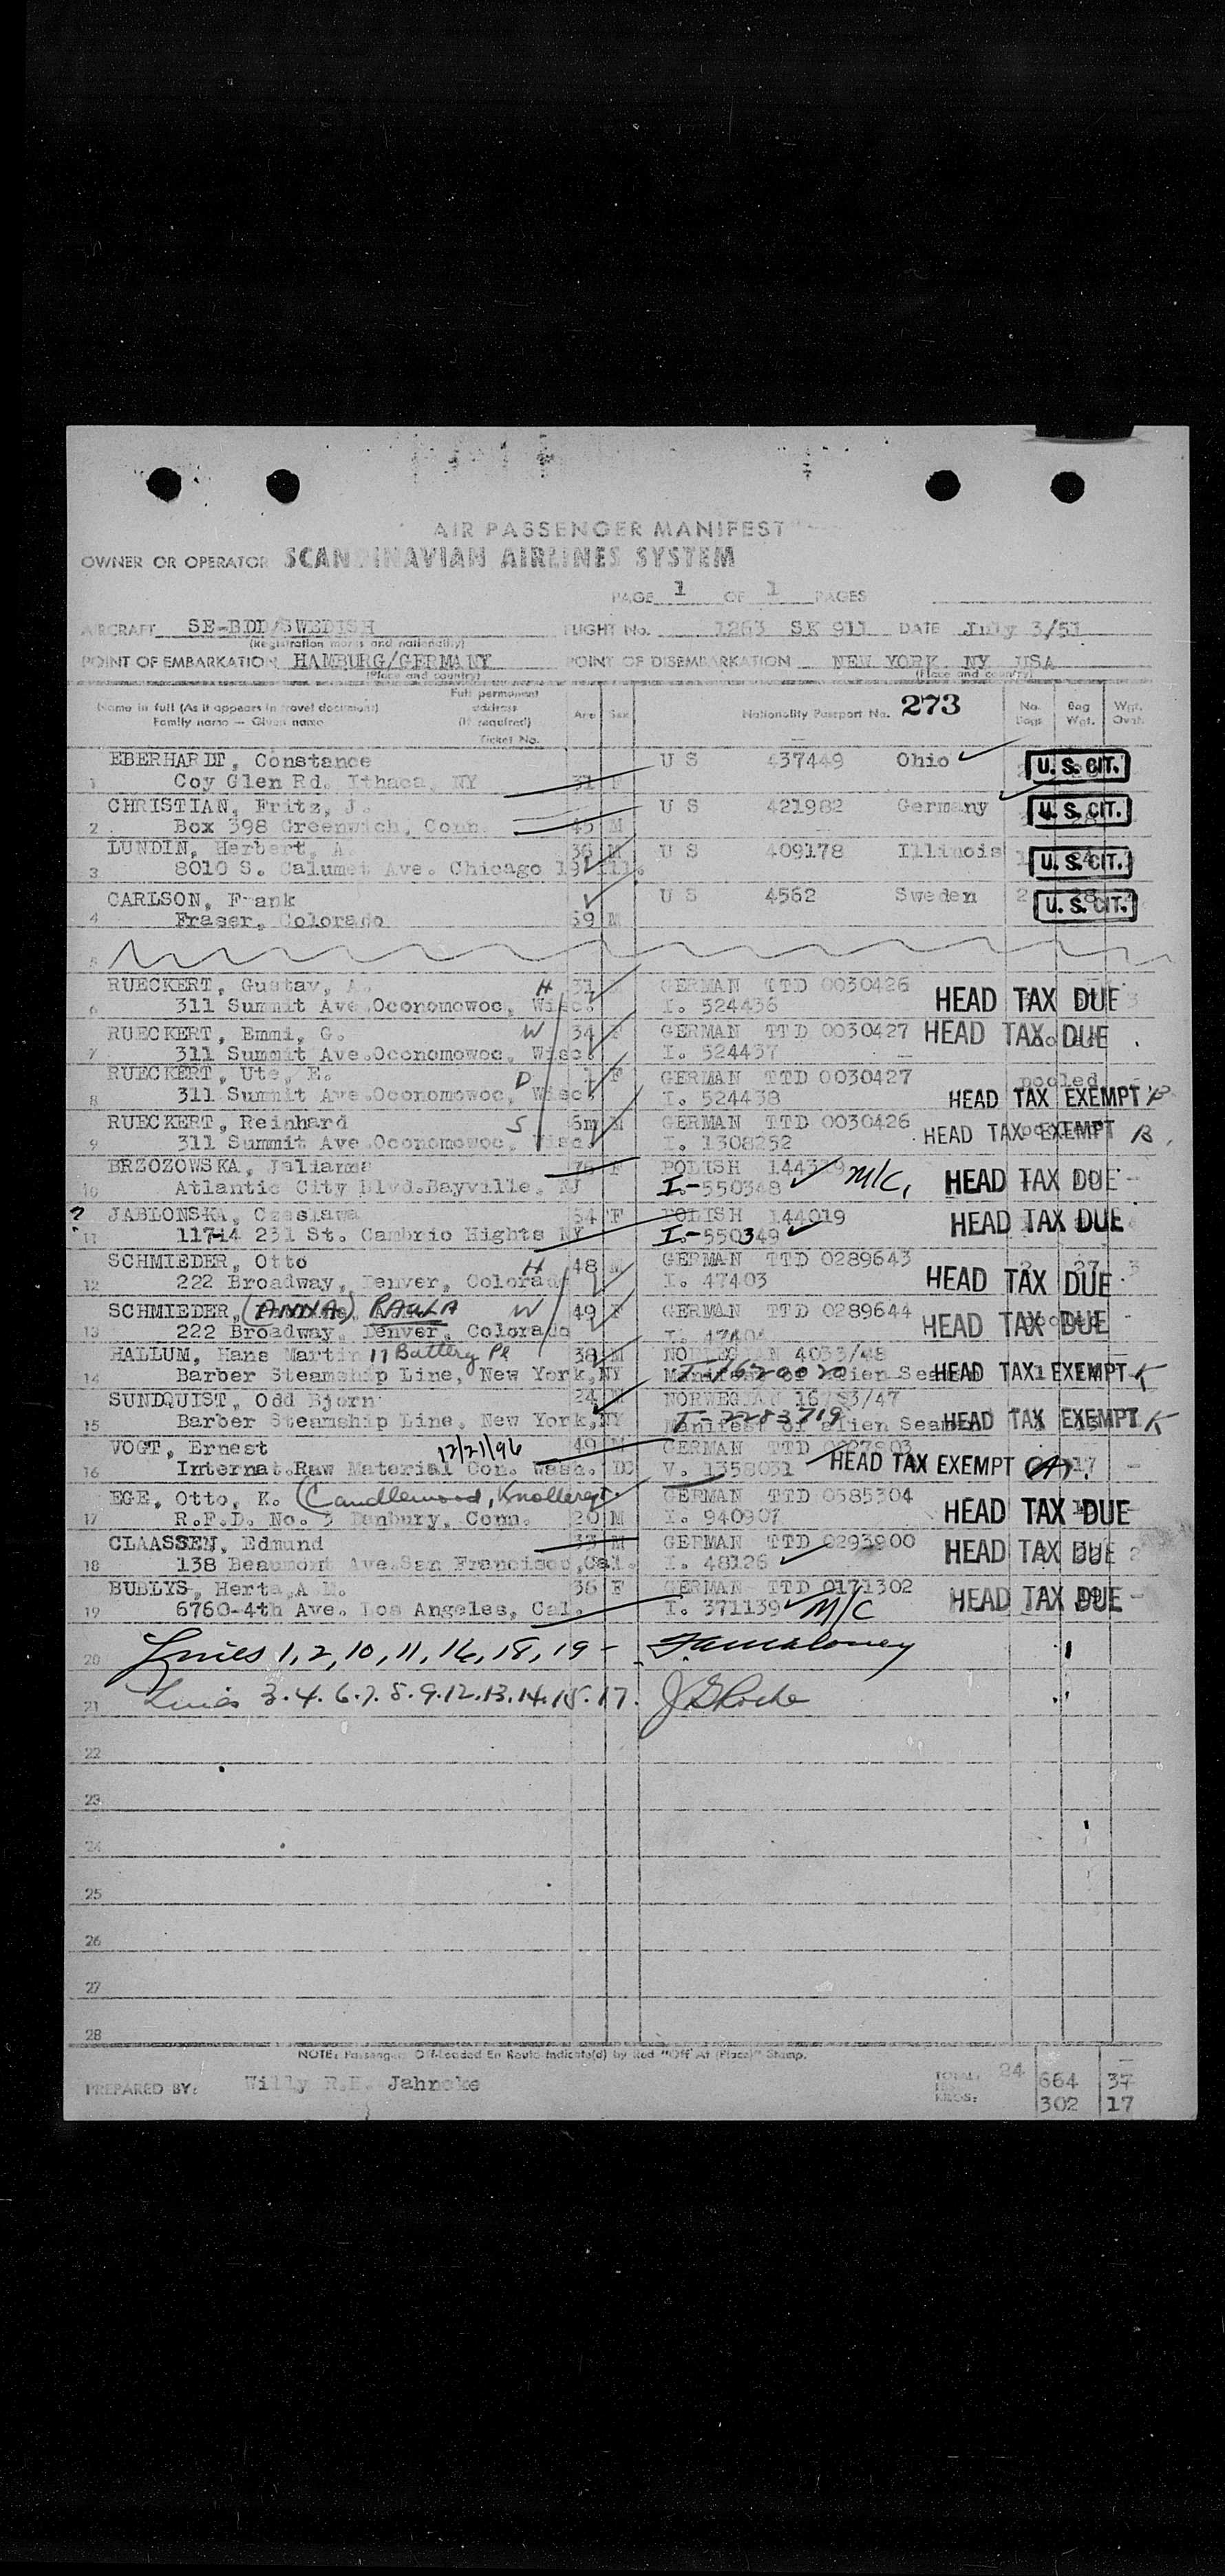 AIR PASSENGER MANIFEST
OWNER OR OPERATOR SCANDINAVIAN AIRLINES SYSTEM
PAGE 1 OF 1 PAGES
AIRCRAFT SE-BDD/SWEDISH FLIGHT No. 1263 SK 911 DATE July 3/51
(Registration marks and nationality)
POINT OF EMBARKATION HAMBURG/GERMANY POINT OF DISEMBARKATION NEW YORK NY USA
(Place and country) (Place and country)
Name in full (As it appears in travel document) Full permanent address (If required) Age Sex Nationality Passport No. 273 No. Bags Bag Wgt. Wgt.
Family name — Given name
Ticket No.
EBERHARDT, Constance U S 437449 Ohio U. S. CIT.
1 Coy Glen Rd. Ithaca, NY 31 F
CHRISTIAN, Fritz, J. U S 421982 Germany U. S. CIT.
2 Box 398 Greenwich, Conn. 45 M
LUNDIN, Herbert, A. 36 M U S 409178 Illinois U. S. CIT.
3 8010 S. Calumet Ave. Chicago 19 Ill.
CARLSON, Frank U S 4562 Sweden 2 28 U. S. CIT.
4 Fraser, Colorado 59 M
5
RUECKERT, Gustav, A. H 31 GERMAN TTD 0030426
6 311 Summit Ave.Oconomowoc, Wisc. I. 524436 HEAD TAX DUE
RUECKERT, Emmi, G. W 34 F GERMAN TTD 0030427 HEAD TAX DUE
7 311 Summit Ave.Oconomowoc, Wisc. I. 524437
RUECKERT, Ute, E. D F GERMAN TTD 0030427 pooled
8 311 Summit Ave.Oconomowoc, Wisc. I. 524438 HEAD TAX EXEMPT B
RUECKERT, Reinhard S 6m M GERMAN TTD 0030426
9 311 Summit Ave.Oconomowoc, Wisc. I. 1308252 HEAD TAX EXEMPT B.
BRZOZOWSKA, Julianna 76 F POLISH
10 Atlantic City Blvd.Bayville, NJ I.-550348 M/C, HEAD TAX DUE
? JABLONSKA, Czeslawa 54 F POLISH 144019 HEAD TAX DUE
11 117-14 231 St. Cambrio Hights NY I.-550349
SCHMIEDER, Otto H 48 M GERMAN TTD 0289643
12 222 Broadway, Denver, Colorado I. 47403 HEAD TAX DUE
SCHMIEDER, (ANNA) PAULA W 49 F GERMAN TTD 0289644
13 222 Broadway, Denver, Colorado HEAD TAX DUE
HALLUM, Hans Martin 17 Battery Pl 38 M NORWEGIAN 4033/48
14 Barber Steamship Line, New York, NY Manifest of Alien Seamen HEAD TAX EXEMPT K
SUNDQUIST, Odd Bjorn 24 M NORWEGIAN
15 Barber Steamship Line, New York, NY T-2283719 Manifest of Alien Seamen HEAD TAX EXEMPT K
VOGT, Ernest 12/21/96 49 M GERMAN TTD
16 Internat.Raw Material Con. Wash. DC V. 1358031 HEAD TAX EXEMPT (A) 17
EGE, Otto, K. (Candlewood, GERMAN TTD 0585304
17 R.F.D. No. 3 Danbury, Conn. 20 M I. 940907 HEAD TAX DUE
CLAASSEN, Edmund 33 M GERMAN TTD 0293900
18 138 Beaumont Ave.San Francisco,Cal. I. 48126 HEAD TAX DUE
BUBLYS, Herta,A M. 36 F GERMAN TTD 0171302
19 6760-4th Ave. Los Angeles, Cal. I. 371139 M/C HEAD TAX DUE
20 Lines 1, 2, 10, 11, 16, 18, 19 -
21 Lines 3.4.6.7.8.9.12.13.14.15.17.
22
23
24
25
26
27
28
NOTE: Passenger Off-Loaded En Route Indicate(d) by Red "Off At (Place)" Stamp.
PREPARED BY: Willy R.H. Jahncke TOTAL: 24 664 37
KILOS: 302 17